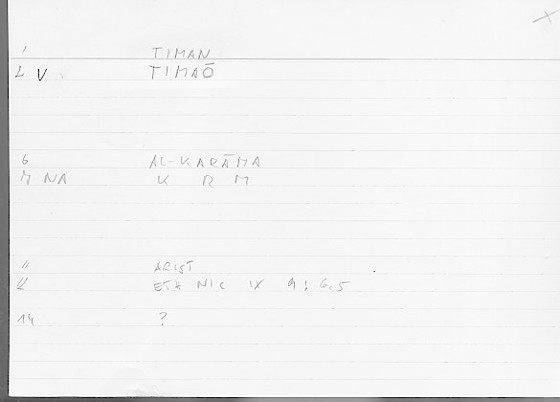 1 TIMAN
2 V TIMAŌ
6 AL-KARĀMA
7 NA K R M
11 ARIST
12 ETH NIC IX 9: 6,5
14 ?